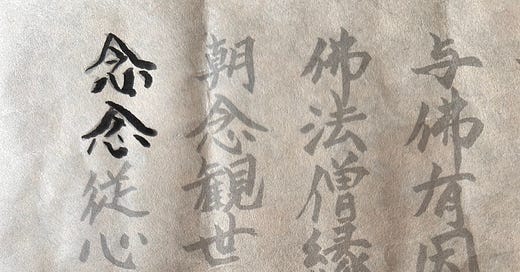 与佛有因
佛法僧縁
朝念観世
念念従心